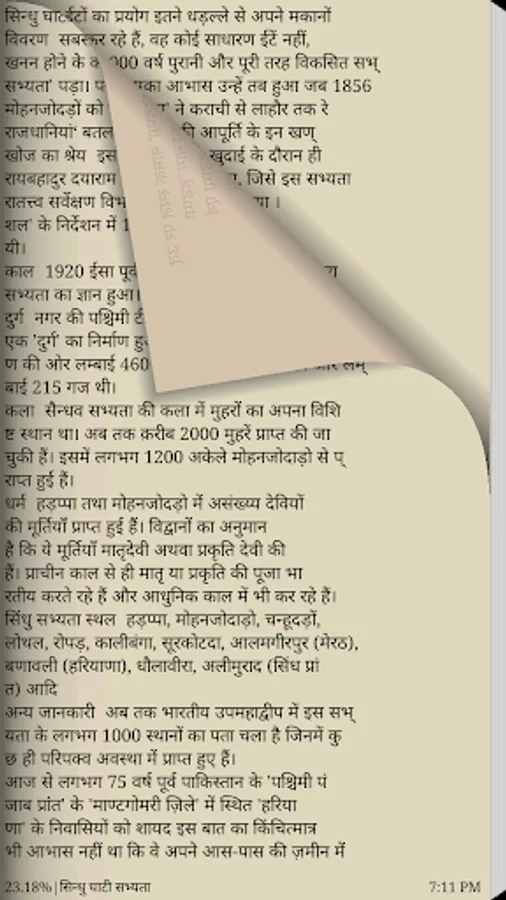 सिन्धु घाटी
ईंटों का प्रयोग इतने धड़ल्ले से अपने मकानों
विवरण सबस्कर रहे हैं, वह कोई साधारण ईंटें नहीं,
खनन होने के क 000 वर्ष पुरानी और पूरी तरह विकसित सभ्
सभ्यता' पड़ा। प का आभास उन्हें तब हुआ जब 1856
मोहनजोदड़ों को ' ने कराची से लाहौर तक रे
राजधानियां' बतल की आपूर्ति के इन खण्
खोज का श्रेय इस खुदाई के दौरान ही
रायबहादुर दयाराम जिसे इस सभ्यता
रातत्त्व सर्वेक्षण विभ या ।
शल' के निर्देशन में 1
यी।
काल 1920 ईसा पूर्व
सभ्यता का ज्ञान हुआ।
दुर्ग नगर की पश्चिमी टी
एक 'दुर्ग' का निर्माण हु
ण की ओर लम्बाई 460 और लम्
बाई 215 गज थी।
कला सैन्धव सभ्यता की कला में मुहरों का अपना विशि
ष्ट स्थान था। अब तक क़रीब 2000 मुहरें प्राप्त की जा
चुकी हैं। इसमें लगभग 1200 अकेले मोहनजोदाड़ो से प्
राप्त हुई हैं।
धर्म हड़प्पा तथा मोहनजोदड़ो में असंख्य देवियों
की मूर्तियाँ प्राप्त हुई हैं। विद्वानों का अनुमान
है कि ये मूर्तियाँ मातृदेवी अथवा प्रकृति देवी की
हैं। प्राचीन काल से ही मातृ या प्रकृति की पूजा भा
रतीय करते रहे हैं और आधुनिक काल में भी कर रहे हैं।
सिंधु सभ्यता स्थल हड़प्पा, मोहनजोदाड़ो, चन्हूदड़ों,
लोथल, रोपड़, कालीबंगा, सूरकोटदा, आलमगीरपुर (मेरठ),
बणावली (हरियाणा), धौलावीरा, अलीमुराद (सिंध प्रां
त) आदि
अन्य जानकारी अब तक भारतीय उपमहाद्वीप में इस सभ्
यता के लगभग 1000 स्थानों का पता चला है जिनमें कु
छ ही परिपक्व अवस्था में प्राप्त हुए हैं।
आज से लगभग 75 वर्ष पूर्व पाकिस्तान के 'पश्चिमी पं
जाब प्रांत' के 'माण्टगोमरी ज़िले' में स्थित 'हरिया
णा' के निवासियों को शायद इस बात का किंचित्मात्र
भी आभास नहीं था कि वे अपने आस-पास की ज़मीन में
23.18%|सिन्धु घाटी सभ्यता 7:11 PM